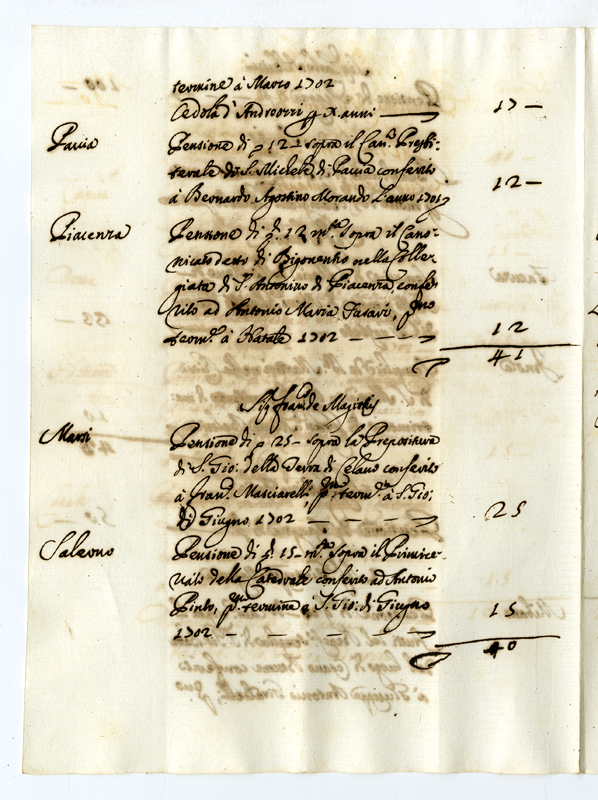 termine à Marzo 1702
Cedola d'Androzzi p X. anni — 17 —
Pavia Pensione di p 12 - sopra il Can.º Presbi-
terale di S. Michele di Pavia conferito
à Bernardo Agostino Morando l'anno 1701 12 —
Piacenza Pensione di p. 12 m.ta sopra il Cano-
nicato detto di Bigonentio nella Colle-
giata di S. Antonino di Piacenza confe-
rito ad Antonio Maria p.mo
term.e à Natale 1702 — — — 12
41
Sig. Fran.co de Magistris
Marsi Pensione di p 25 - sopra la Prepositura
di S. Gio: della Terra di Celano conferito
à Fran.co Masciarelli, p.mo term.e à S. Gio:
di Giugno 1702 — — — — 25
Salerno Pensione di p. 15 - m.ta sopra il Primice-
riato della Catedrale conferito ad Antonio
Pinto, p.mo termine à S. Gio: di Giugno 15
1702 — — — — —
40